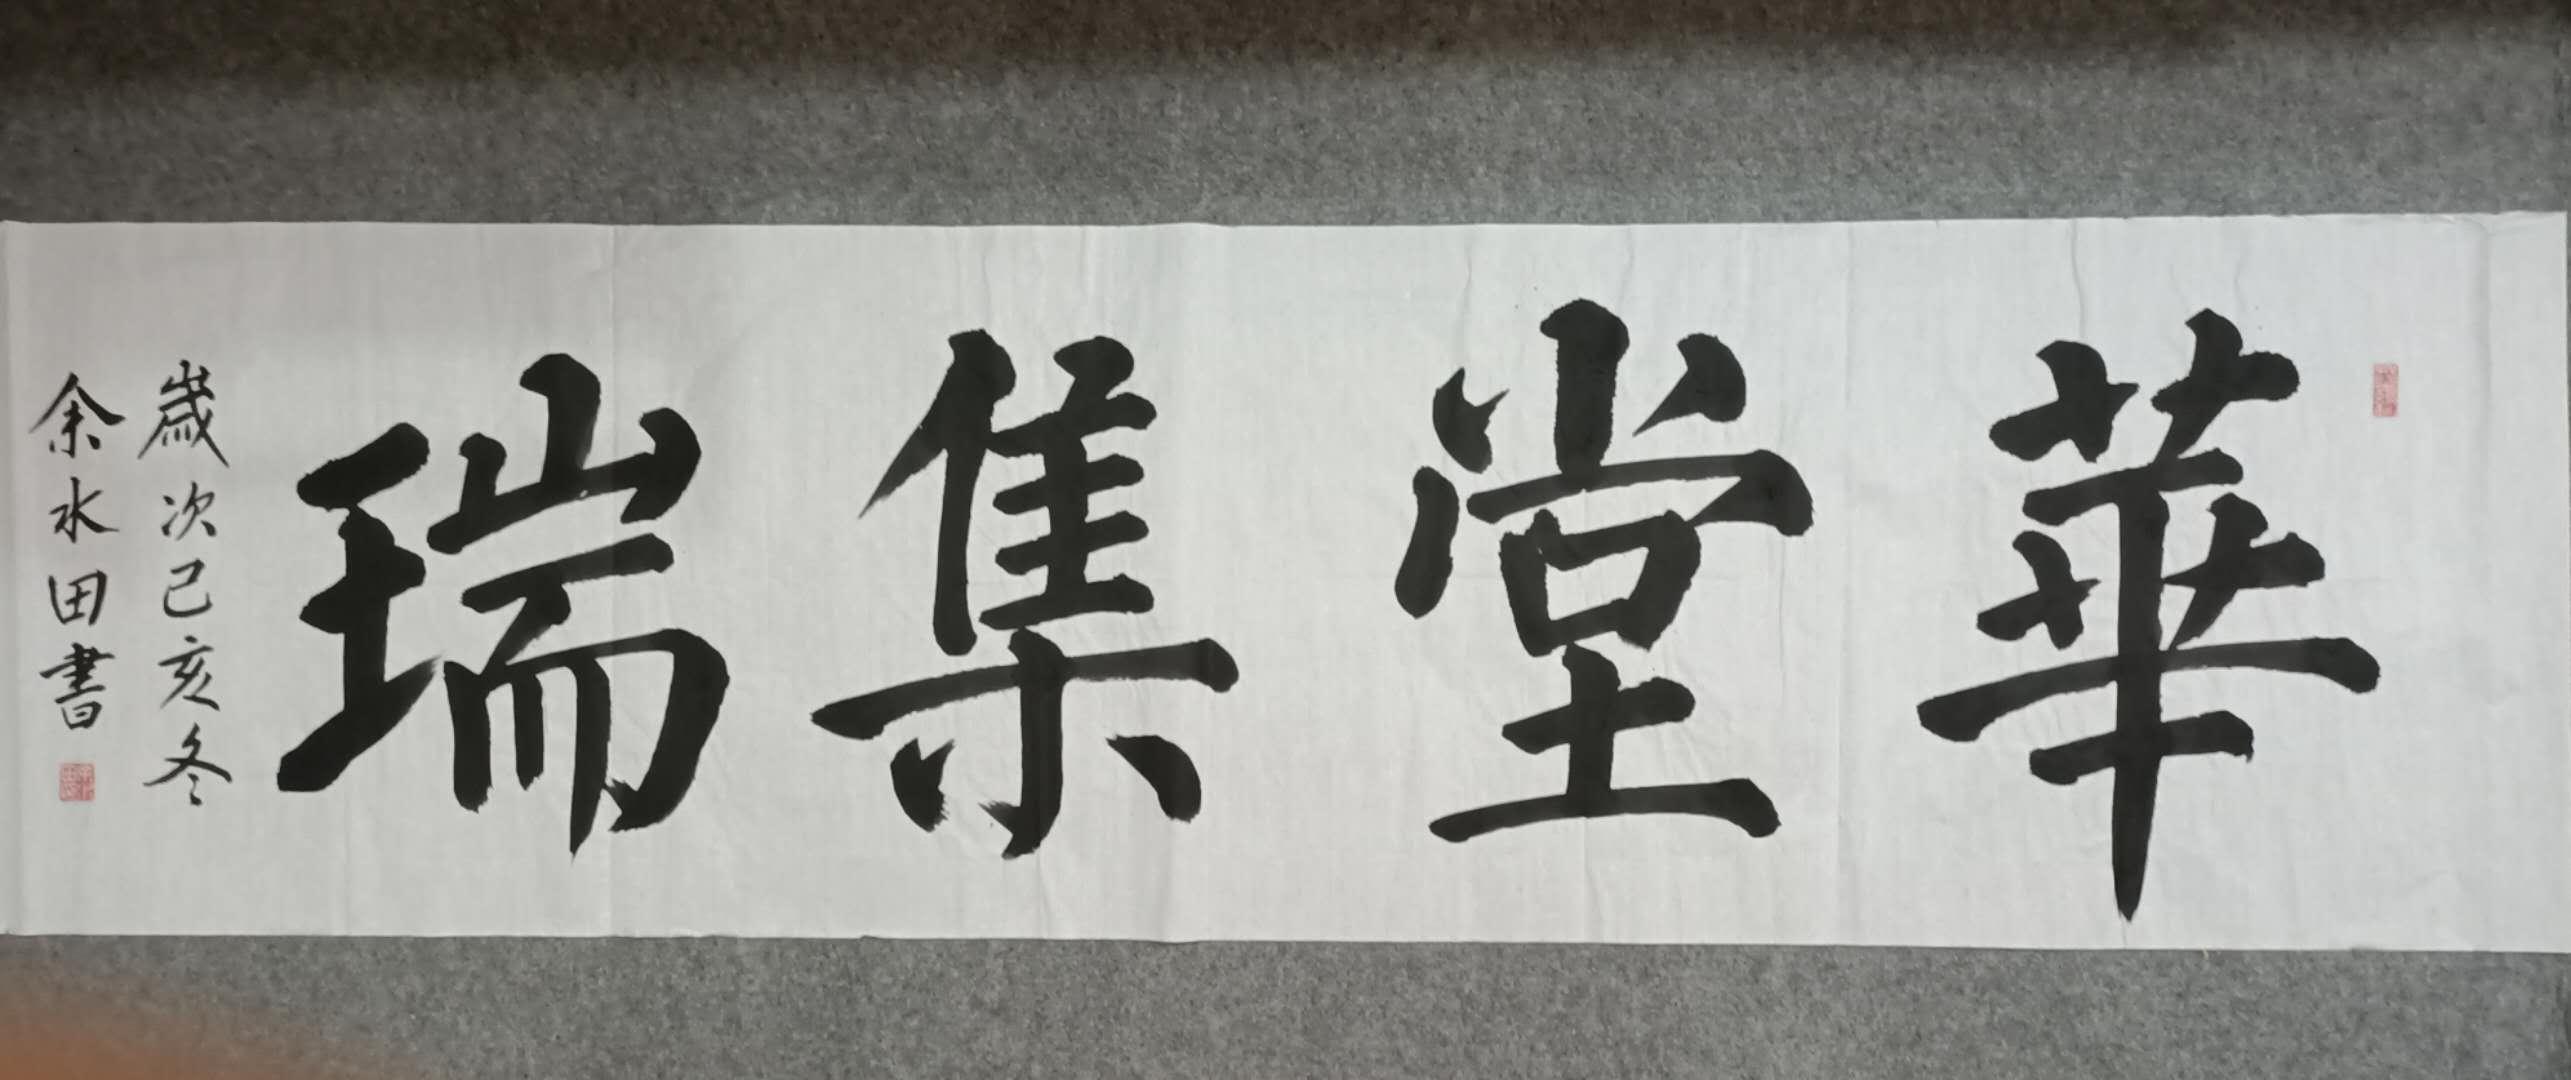 華堂集瑞
歲次己亥冬
余水田書